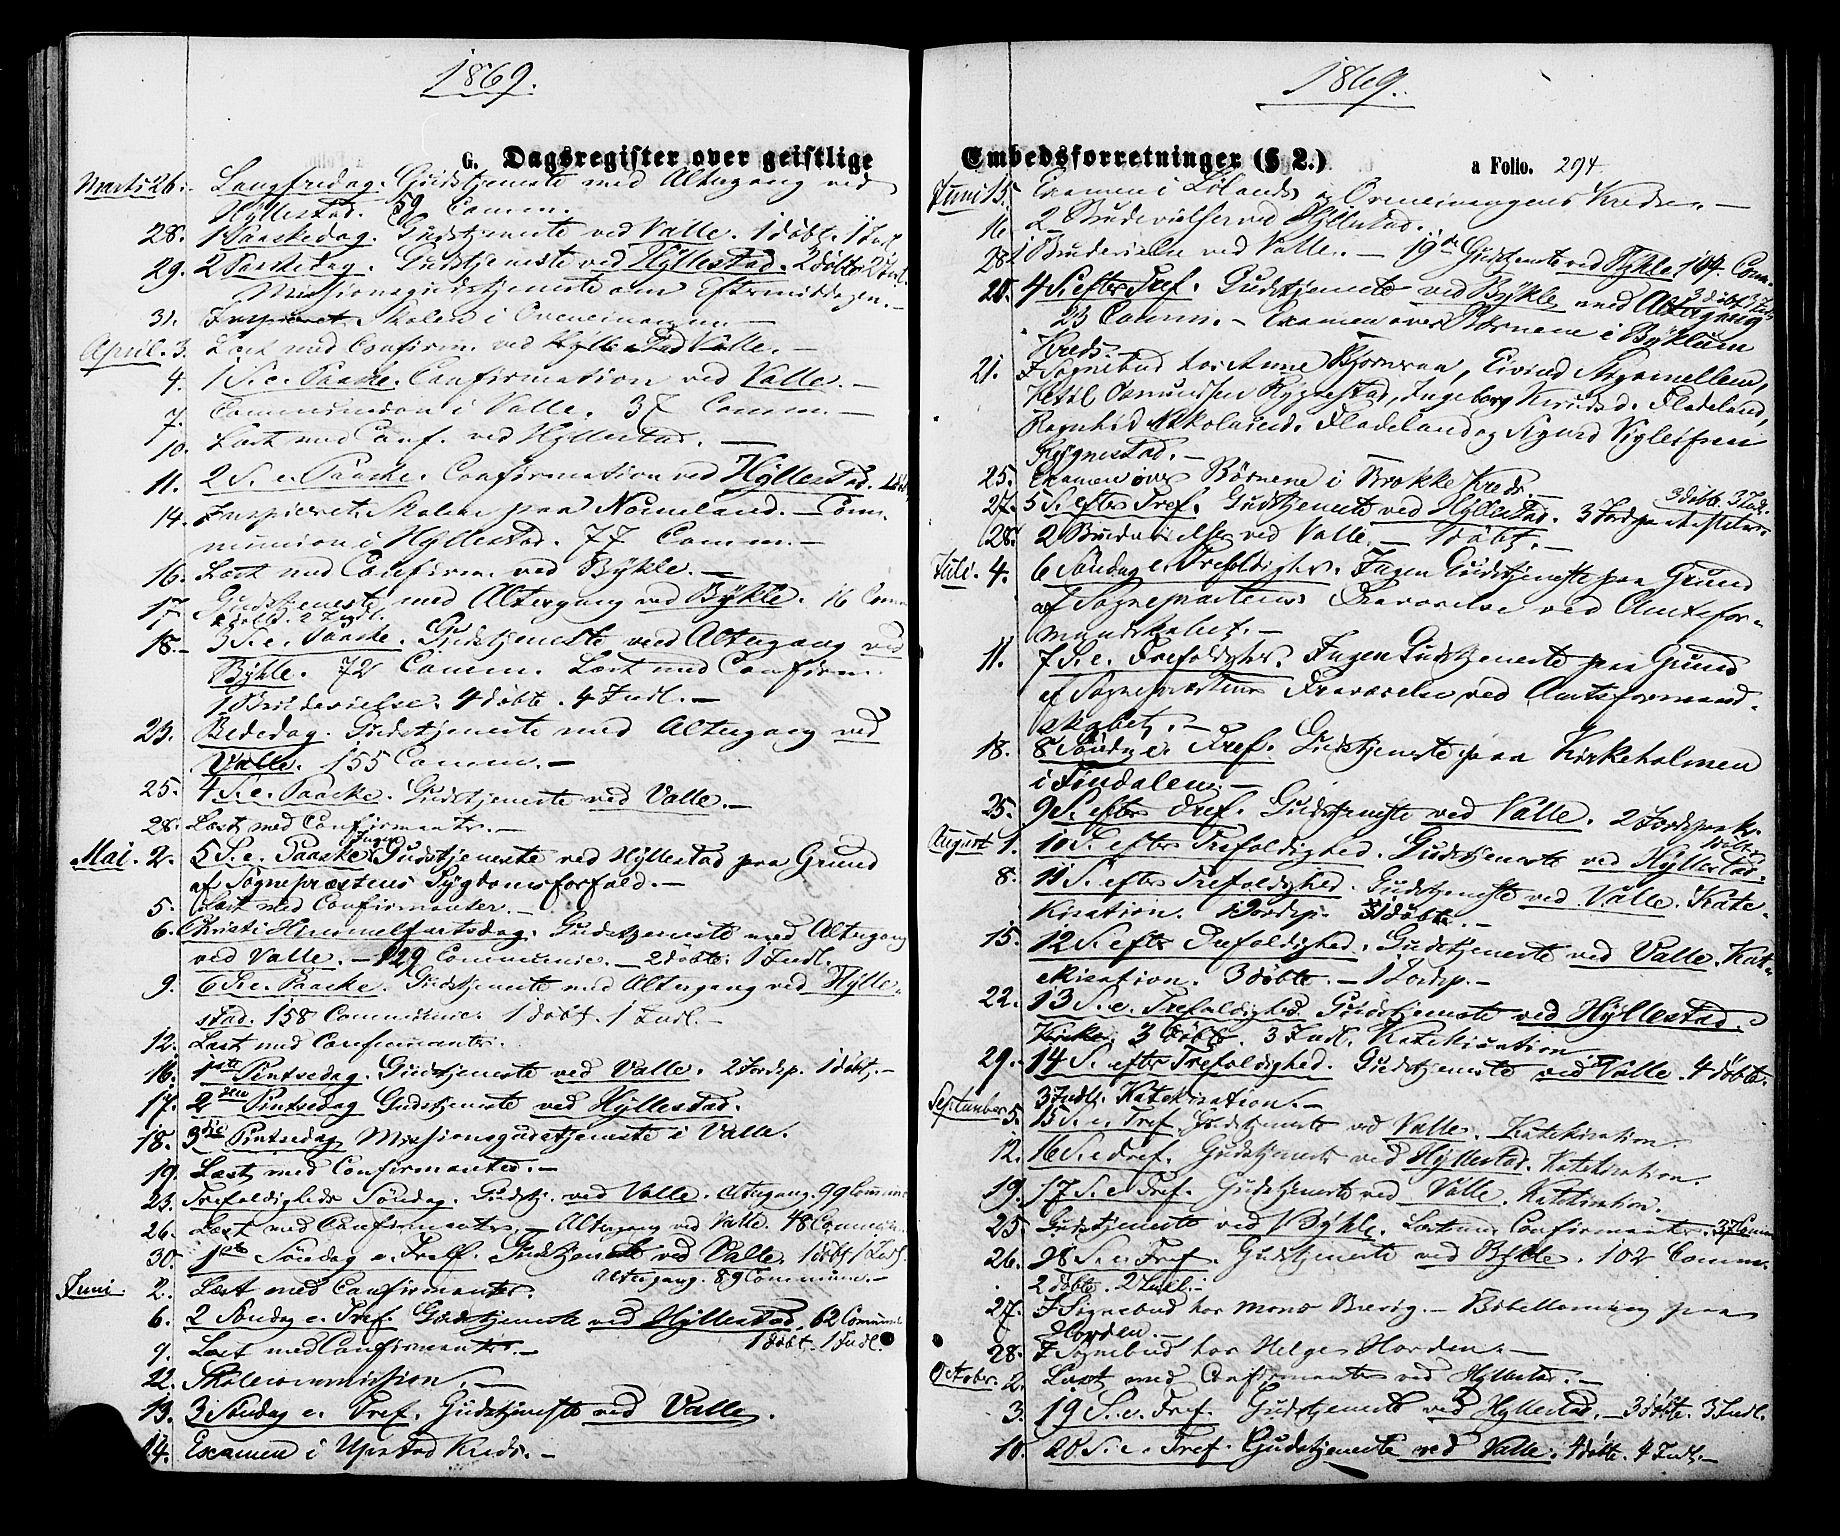 1869.
G. Dagsregister over geistlige
Marts 26. Langfredag. Gudstjeneste med Altergang ved
Hyllestad. 59 Comm.
28. 1 Paaskedag. Gudstjeneste ved Valle. 1 döbt. 1 Indl.
29. 2 Paaskedag. Gudstjeneste ved Hyllestad. 2 döbte 2 Indl.
Missionsgudstjeneste om Eftermiddagen.-
31. Inspiceret Skolen i
April. 3. Læst med Confirm. ved Valle.-
4. 1 S. e. Paaske. Confirmation ved Valle.-
7. Communion i Valle. 37 Comm.-
10. Læst med Conf. ved Hyllestad.-
11. 2 S. e. Paaske. Confirmation ved Hyllestad.
14. Inspiceret Skolen paa Nomeland.- Com-
munion i Hyllestad. 77 Comm.-
16. Læst med Confirm. ved Bykle.-
17. Gudstjeneste med Altergang ved Bykle. 16 Comm
2 döbte. 2 Indl.
18.- 3 S. e. Paaske. Gudstjeneste med Altergang ved
Bykle. 72 Comm. Læst med Confirm.
1 Brudevielse. 4 döbte. 4 Indl.-
23. Bededag. Gudstjeneste med Altergang ved
Valle. 155 Comm.-
25. 4 S. e. Paaske. Gudstjeneste ved Valle.-
28. Læst med Confirmanter.-
Mai. 2. 5 S. e. Paaske. Ingen Gudstjeneste ved Hyllestad paa Grund
af Sognepræstens Sygdomsforfald.-
5. Læst med Confirmanter.-
6. Christi Himmelfartsdag. Gudstjeneste med Altergang
ved Valle.- 129 Communic.- 2 döbte. 1 Indl.
9. 6 S. e. Paaske. Gudstjeneste med Altergang ved Hylle-
stad. 158 Communic. 1 döbt. 1 Indl.-
12. Læst med Confirmanter.
16. 1ste Pintsedag. Gudstjeneste ved Valle. 2 Jordsp. 1 döbt.-
17. 2den Pintsedag Gudstjeneste ved Hyllestad.
18. 3die Pintsedag Missionsgudstjeneste i Valle.
19. Læst med Confirmanter.-
23. Trefoldigheds Söndag. Gudstj. ved Valle. Altergang. 99 Commun
26. Læst med Confirmanter.- Altergang ved Valle. 48 Commun
30. 1ste Söndag e. Tref. Gudstjeneste ved Valle. 1 döbt 1 Indl.
Altergang. 89 Commun.-
Juni 2. Læst med Confirmanter.
6. 2 Söndag e. Tref. Gudstjeneste ved Hyllestad. 62 Commun
1 döbt. 1 Indl.
9. Læst med Confirmanter.-
12. Skolecommission.-
13. 3 Söndag e. Tref. Gudstjeneste ved Valle.
14. Examen i Upstad Kreds.-
1869.
Embedsforretninger (§ 2.)
a Folio. 294.
Juni 15. Examen i Lølands og Kredse.-
2 Brudevielser ved Hyllestad.
1 Brudevielse ved Valle.- 19de Gudstjeneste ved Bykle Comm
20. 4 S. efter Tref. Gudstjeneste ved Bykle med Altergang
3 döbt 3 Indl.
23 Comm.- Examen over Börnene i Byklum
Kreds.
21. I Sognebud hos Anne Eivind
Ketil Osmundsen Rygnestad, Ingeborg Knudsd. Fladeland,
Ragnhild Fladeland og Sigurd Vigleifsen
Rygnestad.-
25. Examen over Börnene i Brokke Kreds.-
27. 5 S. efter Tref. Gudstjeneste ved Hyllestad.
3 döbte. 3 Indl.
28. 2 Brudevielser ved Valle.- 1 döbt.-
Juli. 4. 6 Söndag e. Trefoldigh. Ingen Gudstjeneste paa Grund
af Sognepræstens Fraværelse ved Amtsfor-
mandskabet.-
11. 7 S. e. Trefoldigh. Ingen Gudstjeneste paa Grund
af Sognepræstens Fraværelse ved Amtsformand-
skabet.-
18. 8 Söndag e. Tref. Gudstjeneste paa Kirkeholmen
i
25. 9 S. efter Tref. Gudstjeneste ved Valle. 2 Jordspaak.
August 1. 10 S. efter Trefoldighed. Gudstjeneste ved Hyllestad.
8. 11 S. efter Trefoldighed. Gudstjeneste ved Valle. Kate-
kisation. 1 Jordsp. 1 döbt.-
15. 12 S. efter Trefoldighed. Gudstjeneste ved Valle. Kate-
kisation. 3 döbte.- 1 Jordsp.-
22. 13 S. e. Trefoldighed. Gudstjeneste ved Hyllestad
Kirke. 3 döbte. 3 Indl. Katekisation.
29. 14 S. efter Trefoldighed. Gudstjeneste ved Valle. 4 döbte.
3 Indl. Katekisation.-
September 5. 15 S. e. Tref. Gudstjeneste ved Valle. Katekisation.
12. 16 S. e Tref. Gudstjeneste ved Hyllestad. Katekisation.
19. 17 S. e Tref. Gudstjeneste ved Valle. Katekisation.
25. Gudstjeneste ved Bykle. Læst m. Confirmanter.
26. 18 S. e. Tref. Gudstjeneste ved Bykle. 102 Comm.
2 döbte. 2 Indl.-
27. I Sognebud hos Bibellæsning paa
Horden.-
28. I Sognebud hos Helge Horden.-
October. 2. Læst med Confirmanter ved Hyllestad.-
3. 19 S. e. Tref. Gudstjeneste ved Hyllestad.- 3 döbte. 3 Indl.
10. 20 S. e. Tref. Gudstjeneste ved Valle. 4 döbte. 4 Indl.-